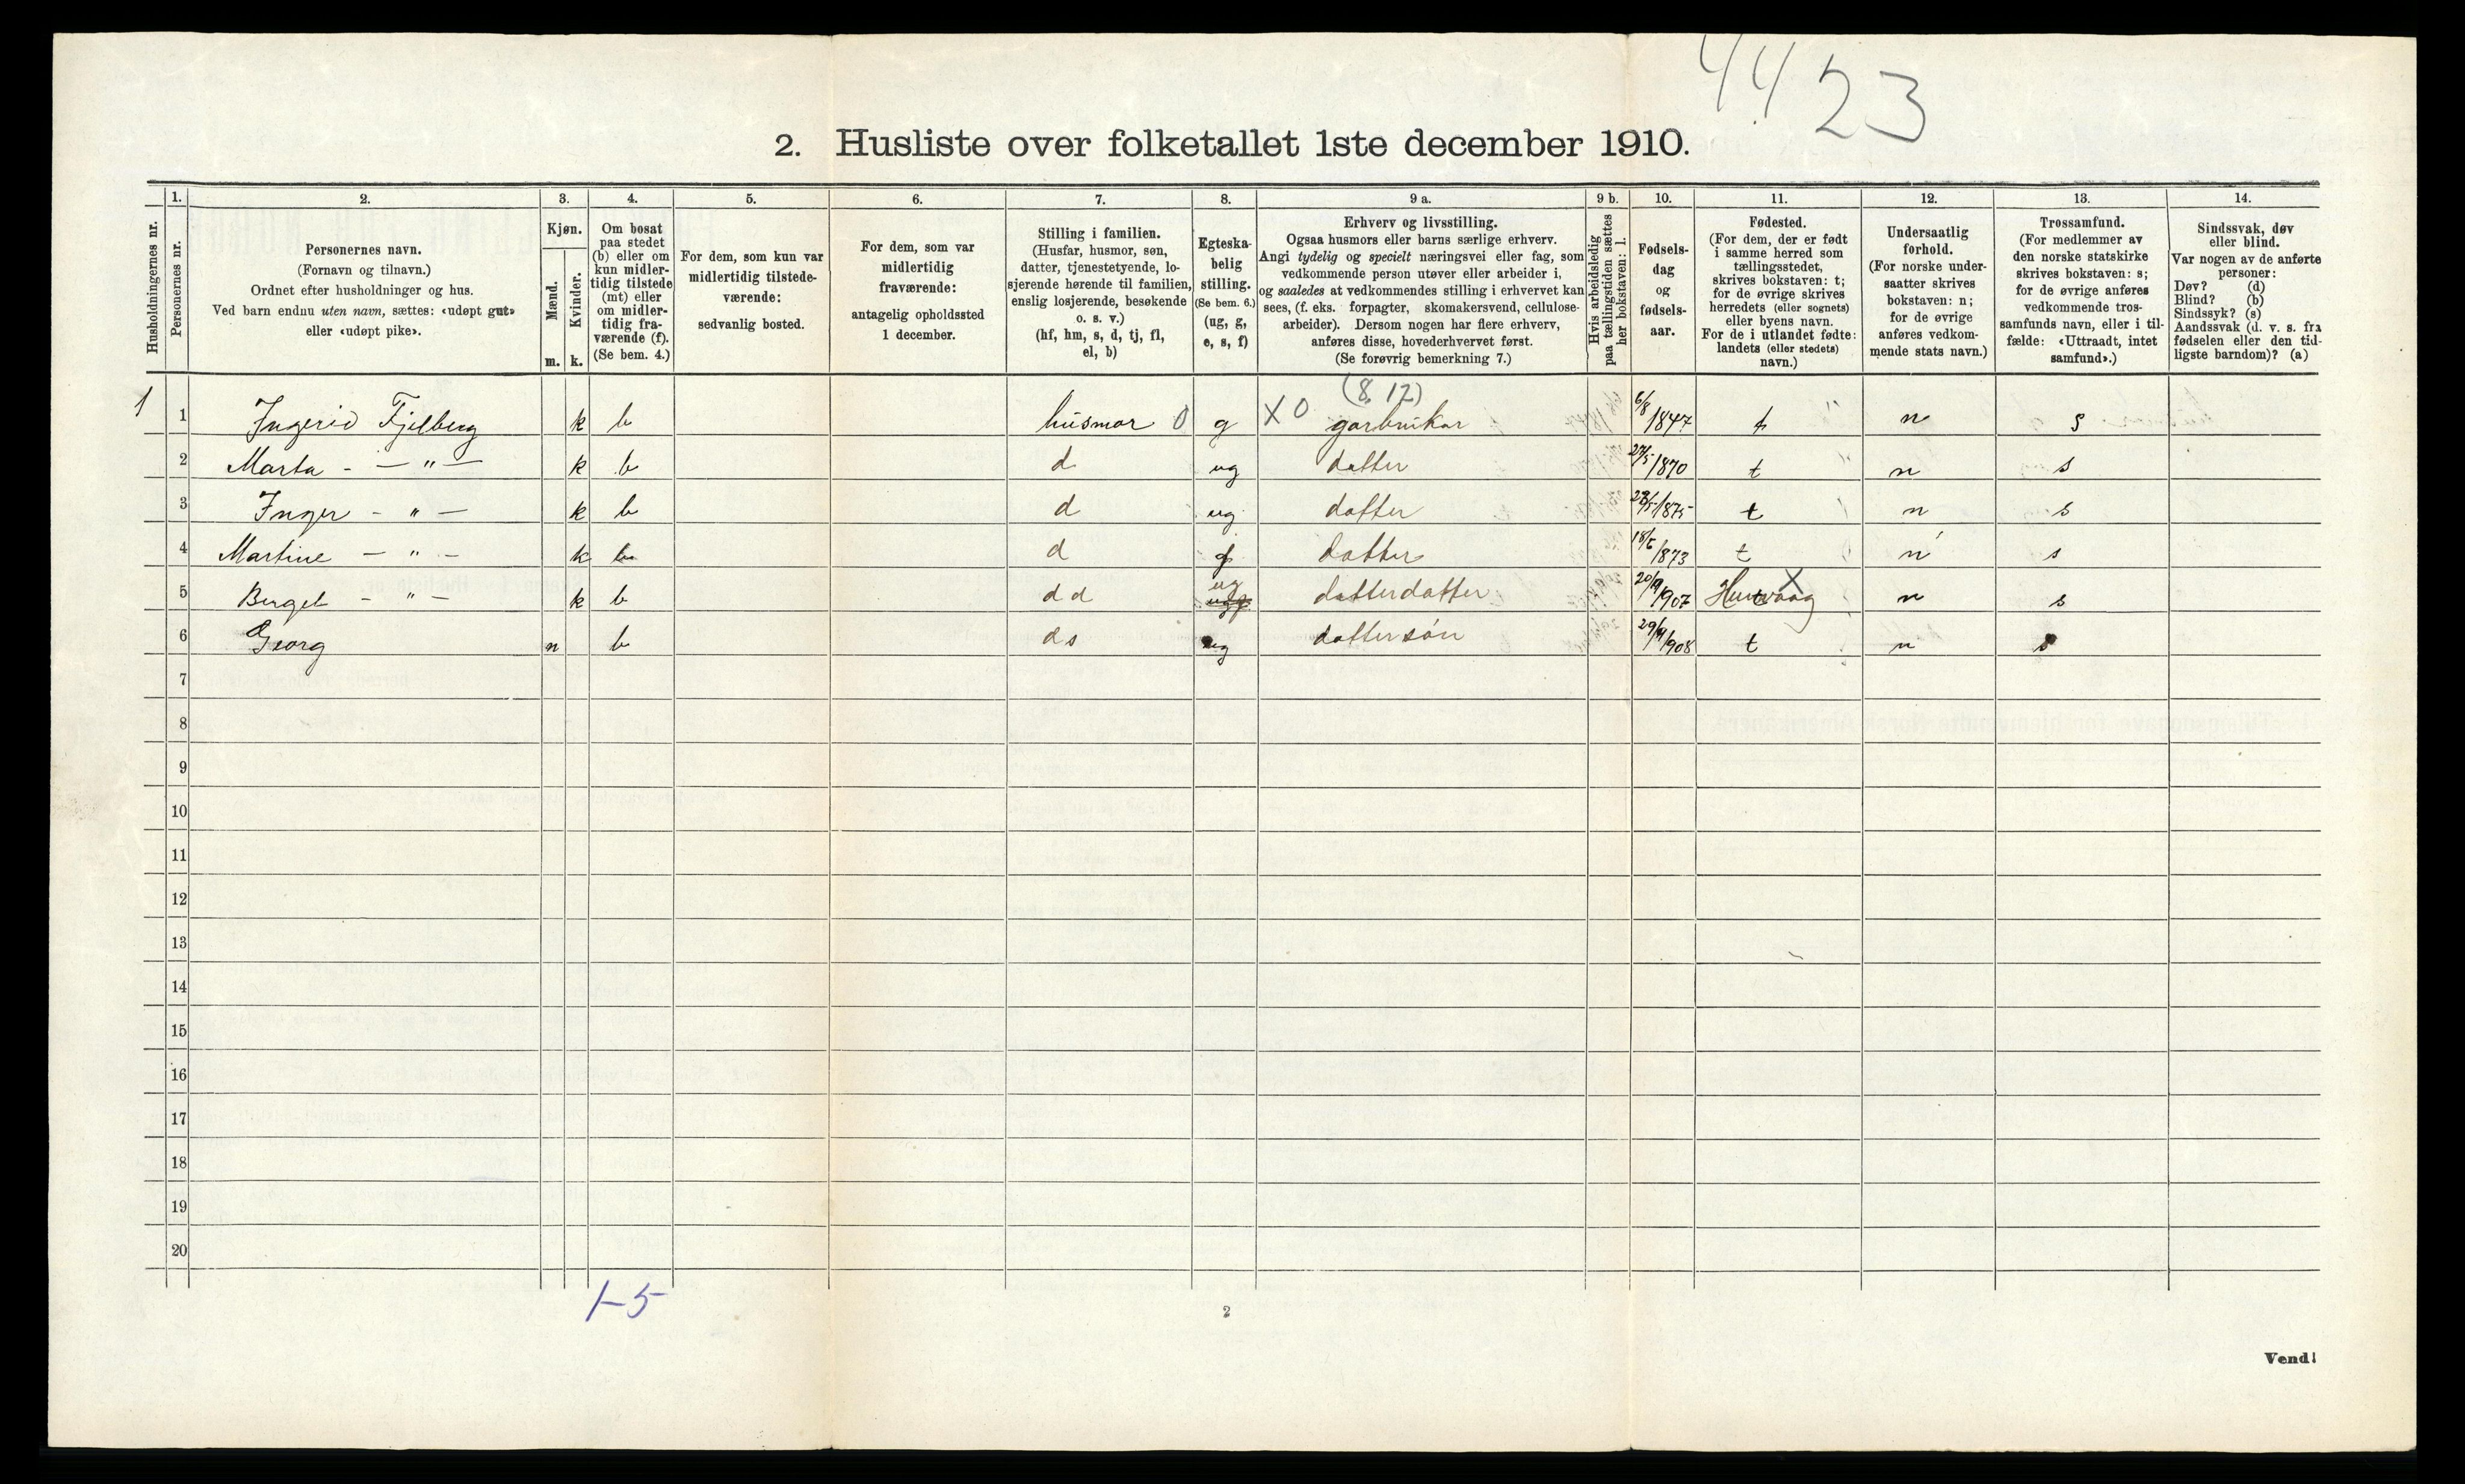 44 23
2. Husliste over folketallet 1ste december 1910.
Husholdningernes nr.
1. Personernes nr.
2. Personernes navn. (Fornavn og tilnavn.) Ordnet efter husholdninger og hus. Ved barn endnu uten navn, sættes: «udøpt gut» eller «udøpt pike».
3. Kjøn. Mænd. m. Kvinder. k.
4. Om bosat paa stedet (b) eller om kun midlertidig tilstede (mt) eller om midlertidig fraværende (f). (Se bem. 4.)
5. For dem, som kun var midlertidig tilstedeværende: sedvanlig bosted.
6. For dem, som var midlertidig fraværende: antagelig opholdssted 1 december.
7. Stilling i familien. (Husfar, husmor, søn, datter, tjenestetyende, losjerende hørende til familien, enslig losjerende, besøkende o. s. v.) (hf, hm, s, d, tj, fl, el, b)
8. Egteskabelig stilling. (Se bem. 6.) (ug, g, e, s, f)
9 a. Erhverv og livsstilling. Ogsaa husmors eller barns særlige erhverv. Angi tydelig og specielt næringsvei eller fag, som vedkommende person utøver eller arbeider i, og saaledes at vedkommendes stilling i erhvervet kan sees, (f. eks. forpagter, skomakersvend, cellulosearbeider). Dersom nogen har flere erhverv, anføres disse, hovederhvervet først. (Se forøvrig bemerkning 7.)
9 b. Hvis arbeidsledig paa tællingstiden sættes her bokstaven: l.
10. Fødselsdag og fødselsaar.
11. Fødested. (For dem, der er født i samme herred som tællingsstedet, skrives bokstaven: t; for de øvrige skrives herredets (eller sognets) eller byens navn. For de i utlandet fødte: landets (eller stedets) navn.)
12. Undersaatlig forhold. (For norske undersaatter skrives bokstaven: n; for de øvrige anføres vedkommende stats navn.)
13. Trossamfund. (For medlemmer av den norske statskirke skrives bokstaven: s; for de øvrige anføres vedkommende trossamfunds navn, eller i tilfælde: «Uttraadt, intet samfund».)
14. Sindssvak, døv eller blind. Var nogen av de anførte personer: Døv? (d) Blind? (b) Sindssyk? (s) Aandssvak (d. v. s. fra fødselen eller den tidligste barndom)? (a)
(8, 12)
1 1 Ingerid Fjelberg k b husmor 0 g X 0 garbrukar 6/8 1847 t n s
2 Marta - — " — k b d ug datter 27/5 1870 t n s
3 Inger - " — k b d ug datter 1875 t n s
4 Martine — " — k b d g datter 1873 t n s
5 Berget - " — k b d d ug datterdatter 20/9 1907 X n s
6 Georg m b d s ug datter søn 29/9 1908 t n s
7
8
9
10
11
12
13
14
15
16
17
18
19
20
1-5
2
Vend!